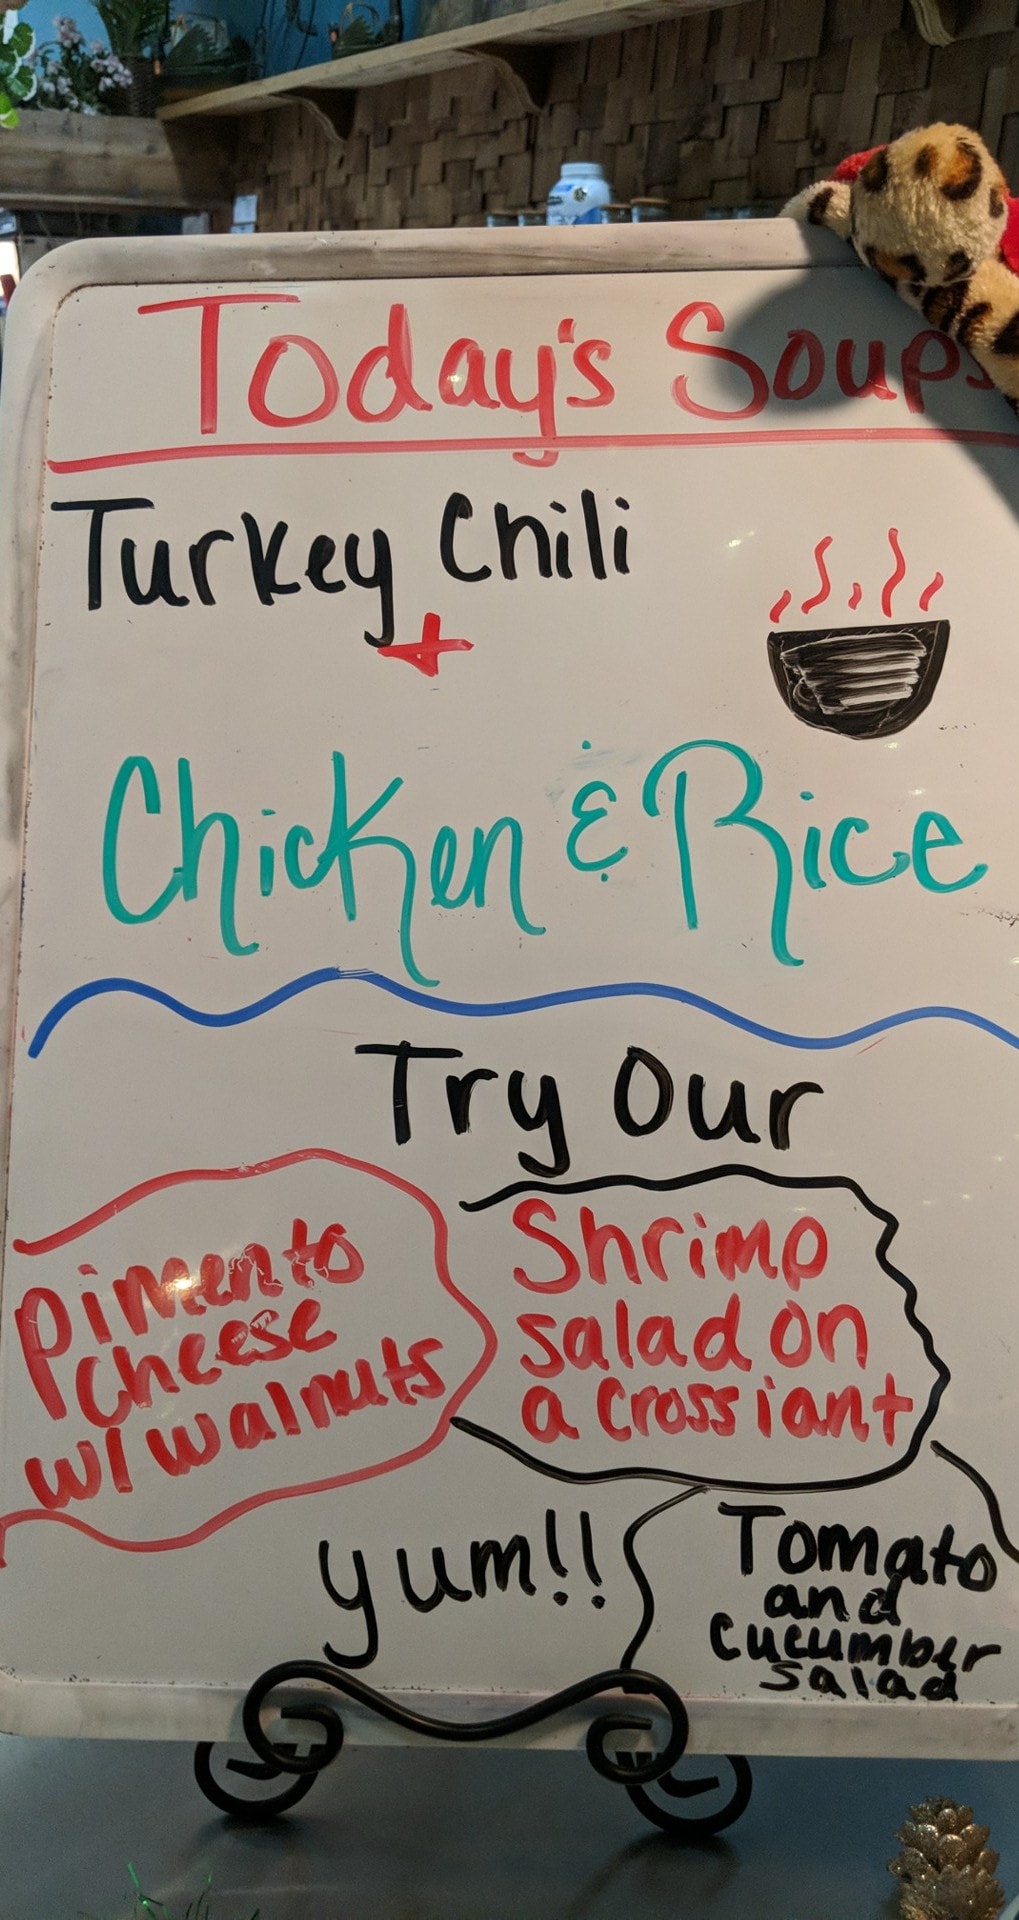 Today's Soups
Turkey Chili
+
Chicken & Rice
Try Our
Pimento
cheese
w/ walnuts
Shrimp
salad on
a crossiant
yum!!
Tomato
and
cucumber
salad